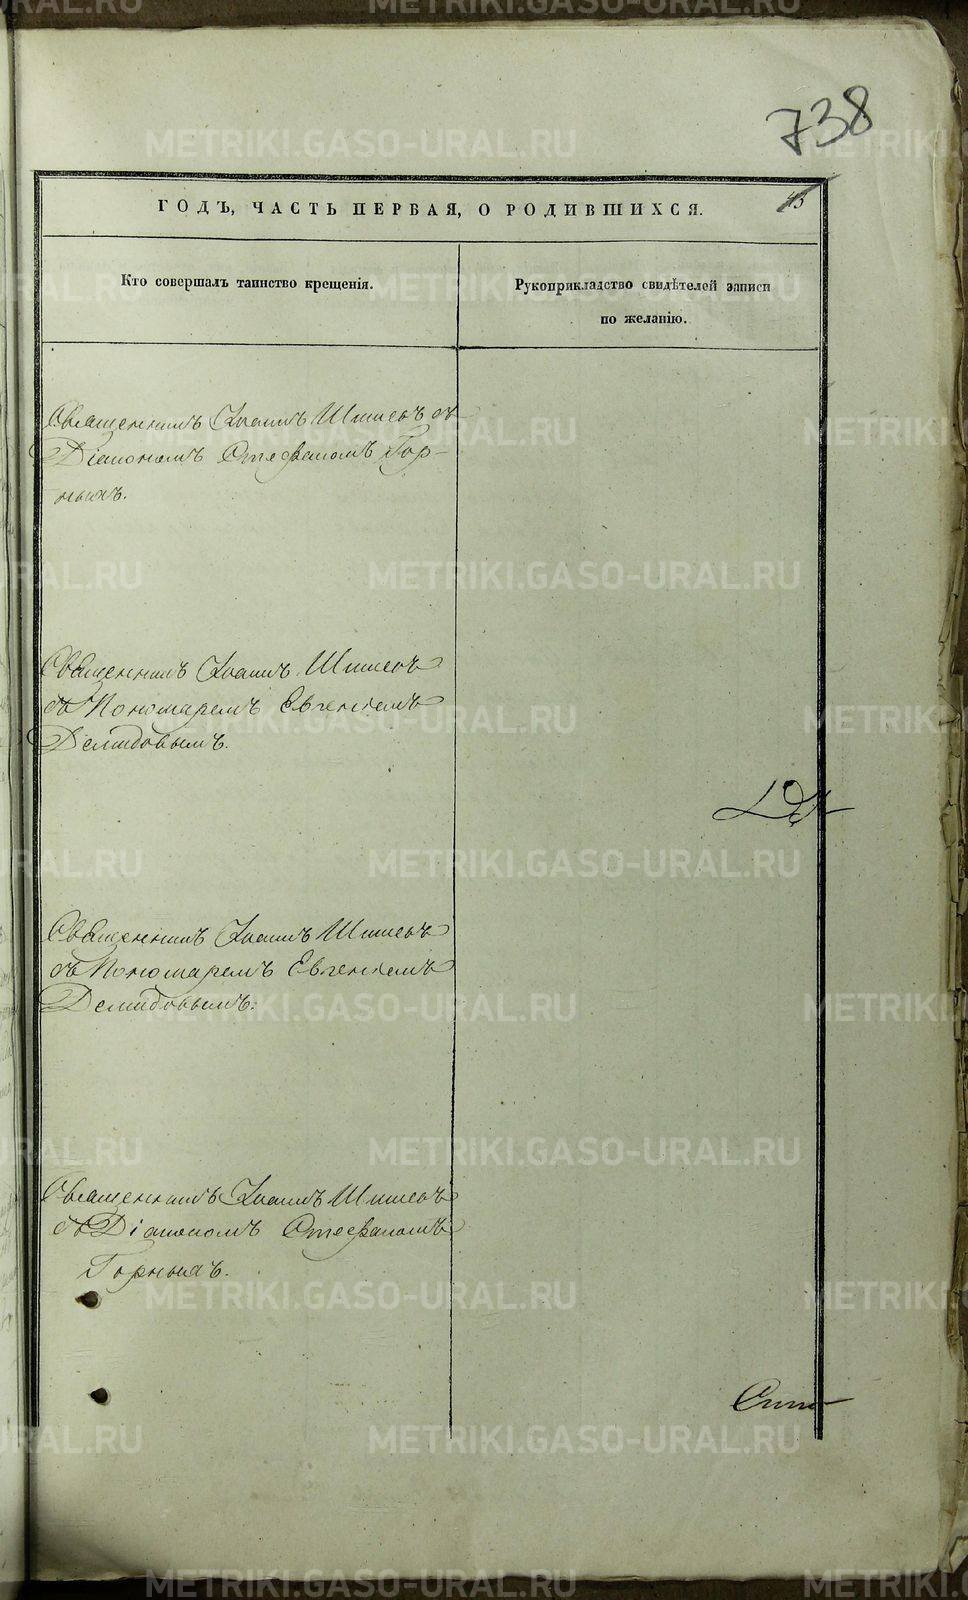 738
ГОДЪ, ЧАСТЬ ПЕРВАЯ, О РОДИВШИХСЯ.
45
Кто совершалъ таинство крещенія.
Рукоприкладство свидѣтелей записи
по желанію.
Священникъ Іоаннъ Шишевъ съ
Діакономъ Стефаномъ Гор-
ныхъ.
Священникъ Іоаннъ Шишевъ
съ Пономаремъ Евгеніемъ
Демидовымъ.
Священникъ Іоаннъ Шишевъ
съ Пономаремъ Евгеніемъ
Демидовымъ.
Священникъ Іоаннъ Шишевъ
съ Діакономъ Стефаномъ
Горныхъ.
METRIKI.GASO-URAL.RU